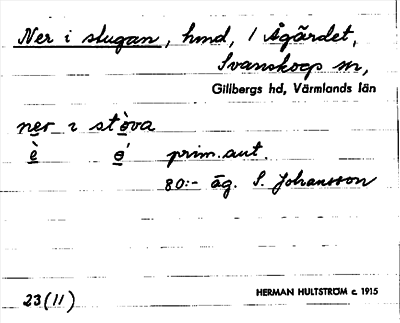 Ner i stugan, hmd, 1 Ågärdet,
Svanskogs sn,
Gillbergs hd, Värmlands län
ner ı stòva
è ǫ́ prim. aut.
80:- äg. S. Johansson
23(11)
HERMAN HULTSTRÖM c. 1915